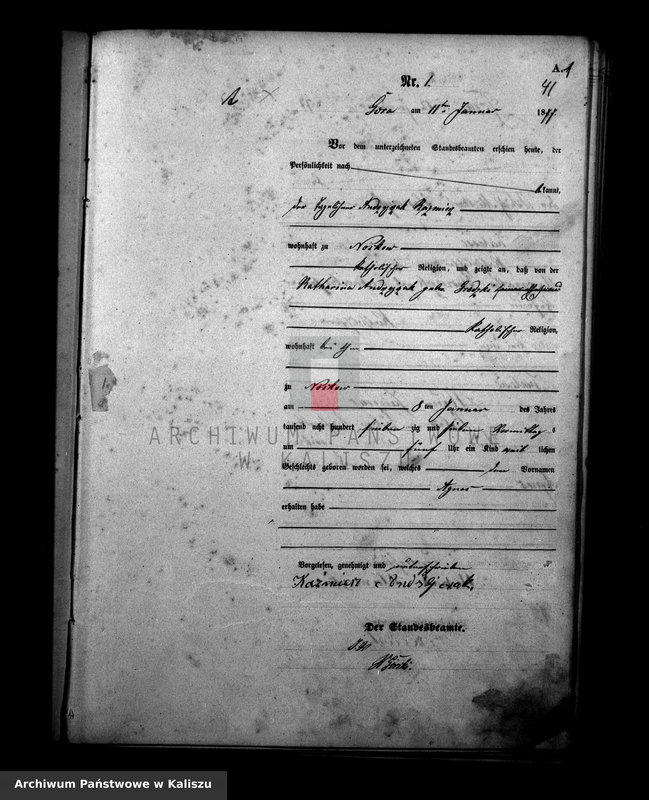 A. 1
Nr. 1.
41
Góra am 11ten Januar 1877.
Vor dem unterzeichneten Standesbeamten erschien heute, der
Persönlichkeit nach
kannt,
der Andrzejczak Kazmierz
wohnhaft zu Noskow
katholischer Religion, und zeigte an, daß von der
Katharina Andrzejczak geborene
katholischer Religion,
wohnhaft bei ihm
zu Noskow
am 8 ten Januar des Jahres
tausend acht hundert sieben zig und sieben Vormittag s
um fünf Uhr ein Kind weib lichen
Geschlechts geboren worden sei, welches den Vornamen
Agnes
erhalten habe
Vorgelesen, genehmigt und unterschrieben
Kaźmierz Andrzejczak
Der Standesbeamte.
ARCHIWUM PAŃSTWOWE
W KALISZU
Archiwum Państwowe w Kaliszu